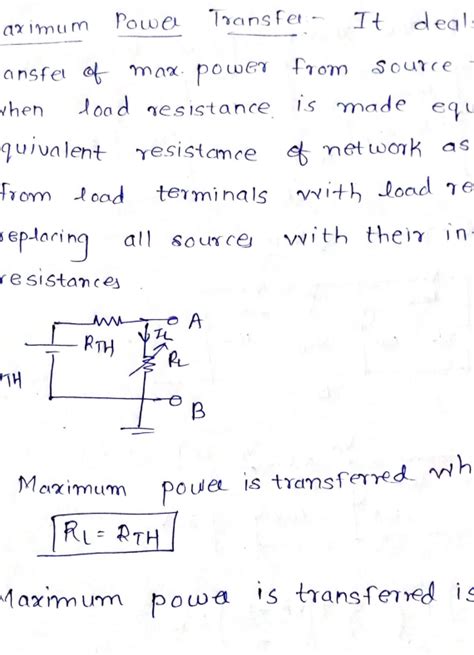 aximum Power Transfer - It deal
ansfer of max. power from source
when load resistance is made equ
quivalent resistance of network as
from load terminals with load re
replacing all sources with their in
resistances
A
RTH
IL
RL
TH
B
Maximum power is transferred wh
RL = RTH
Maximum power is transferred is